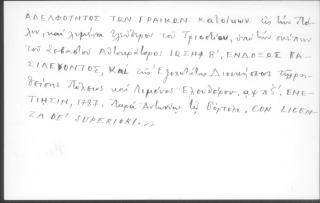 ΑΔΕΛΦΟΤΗΤΟΣ ΤΩΝ ΓΡΑΙΚΩΝ κατοίκων εἰς τὴν Πό-
λιν, καὶ λιμένα ἐλεύθερον τοῦ Τριεστίου, ὑπὸ τὴν σκέπην
τοῦ Σεβαστοῦ Αὐτοκράτορος ΙΩΣΗΦ Β΄, ΕΝΔΟΞΩΣ ΒΑ-
ΣΙΛΕΥΟΝΤΟΣ, Καὶ τῆς Ἐξοχωτάτης Διοικήσεως τῆς
Πόλεως καὶ Λιμένος Ἐλευθέρου, αψπζ΄, ΕΝΕ-
ΤΙΗΣΙΝ, 1787. Παρὰ Ἀντωνίῳ τῷ Βόρτολι. CON LICEN-
ZA DE' SUPERIORI.>>